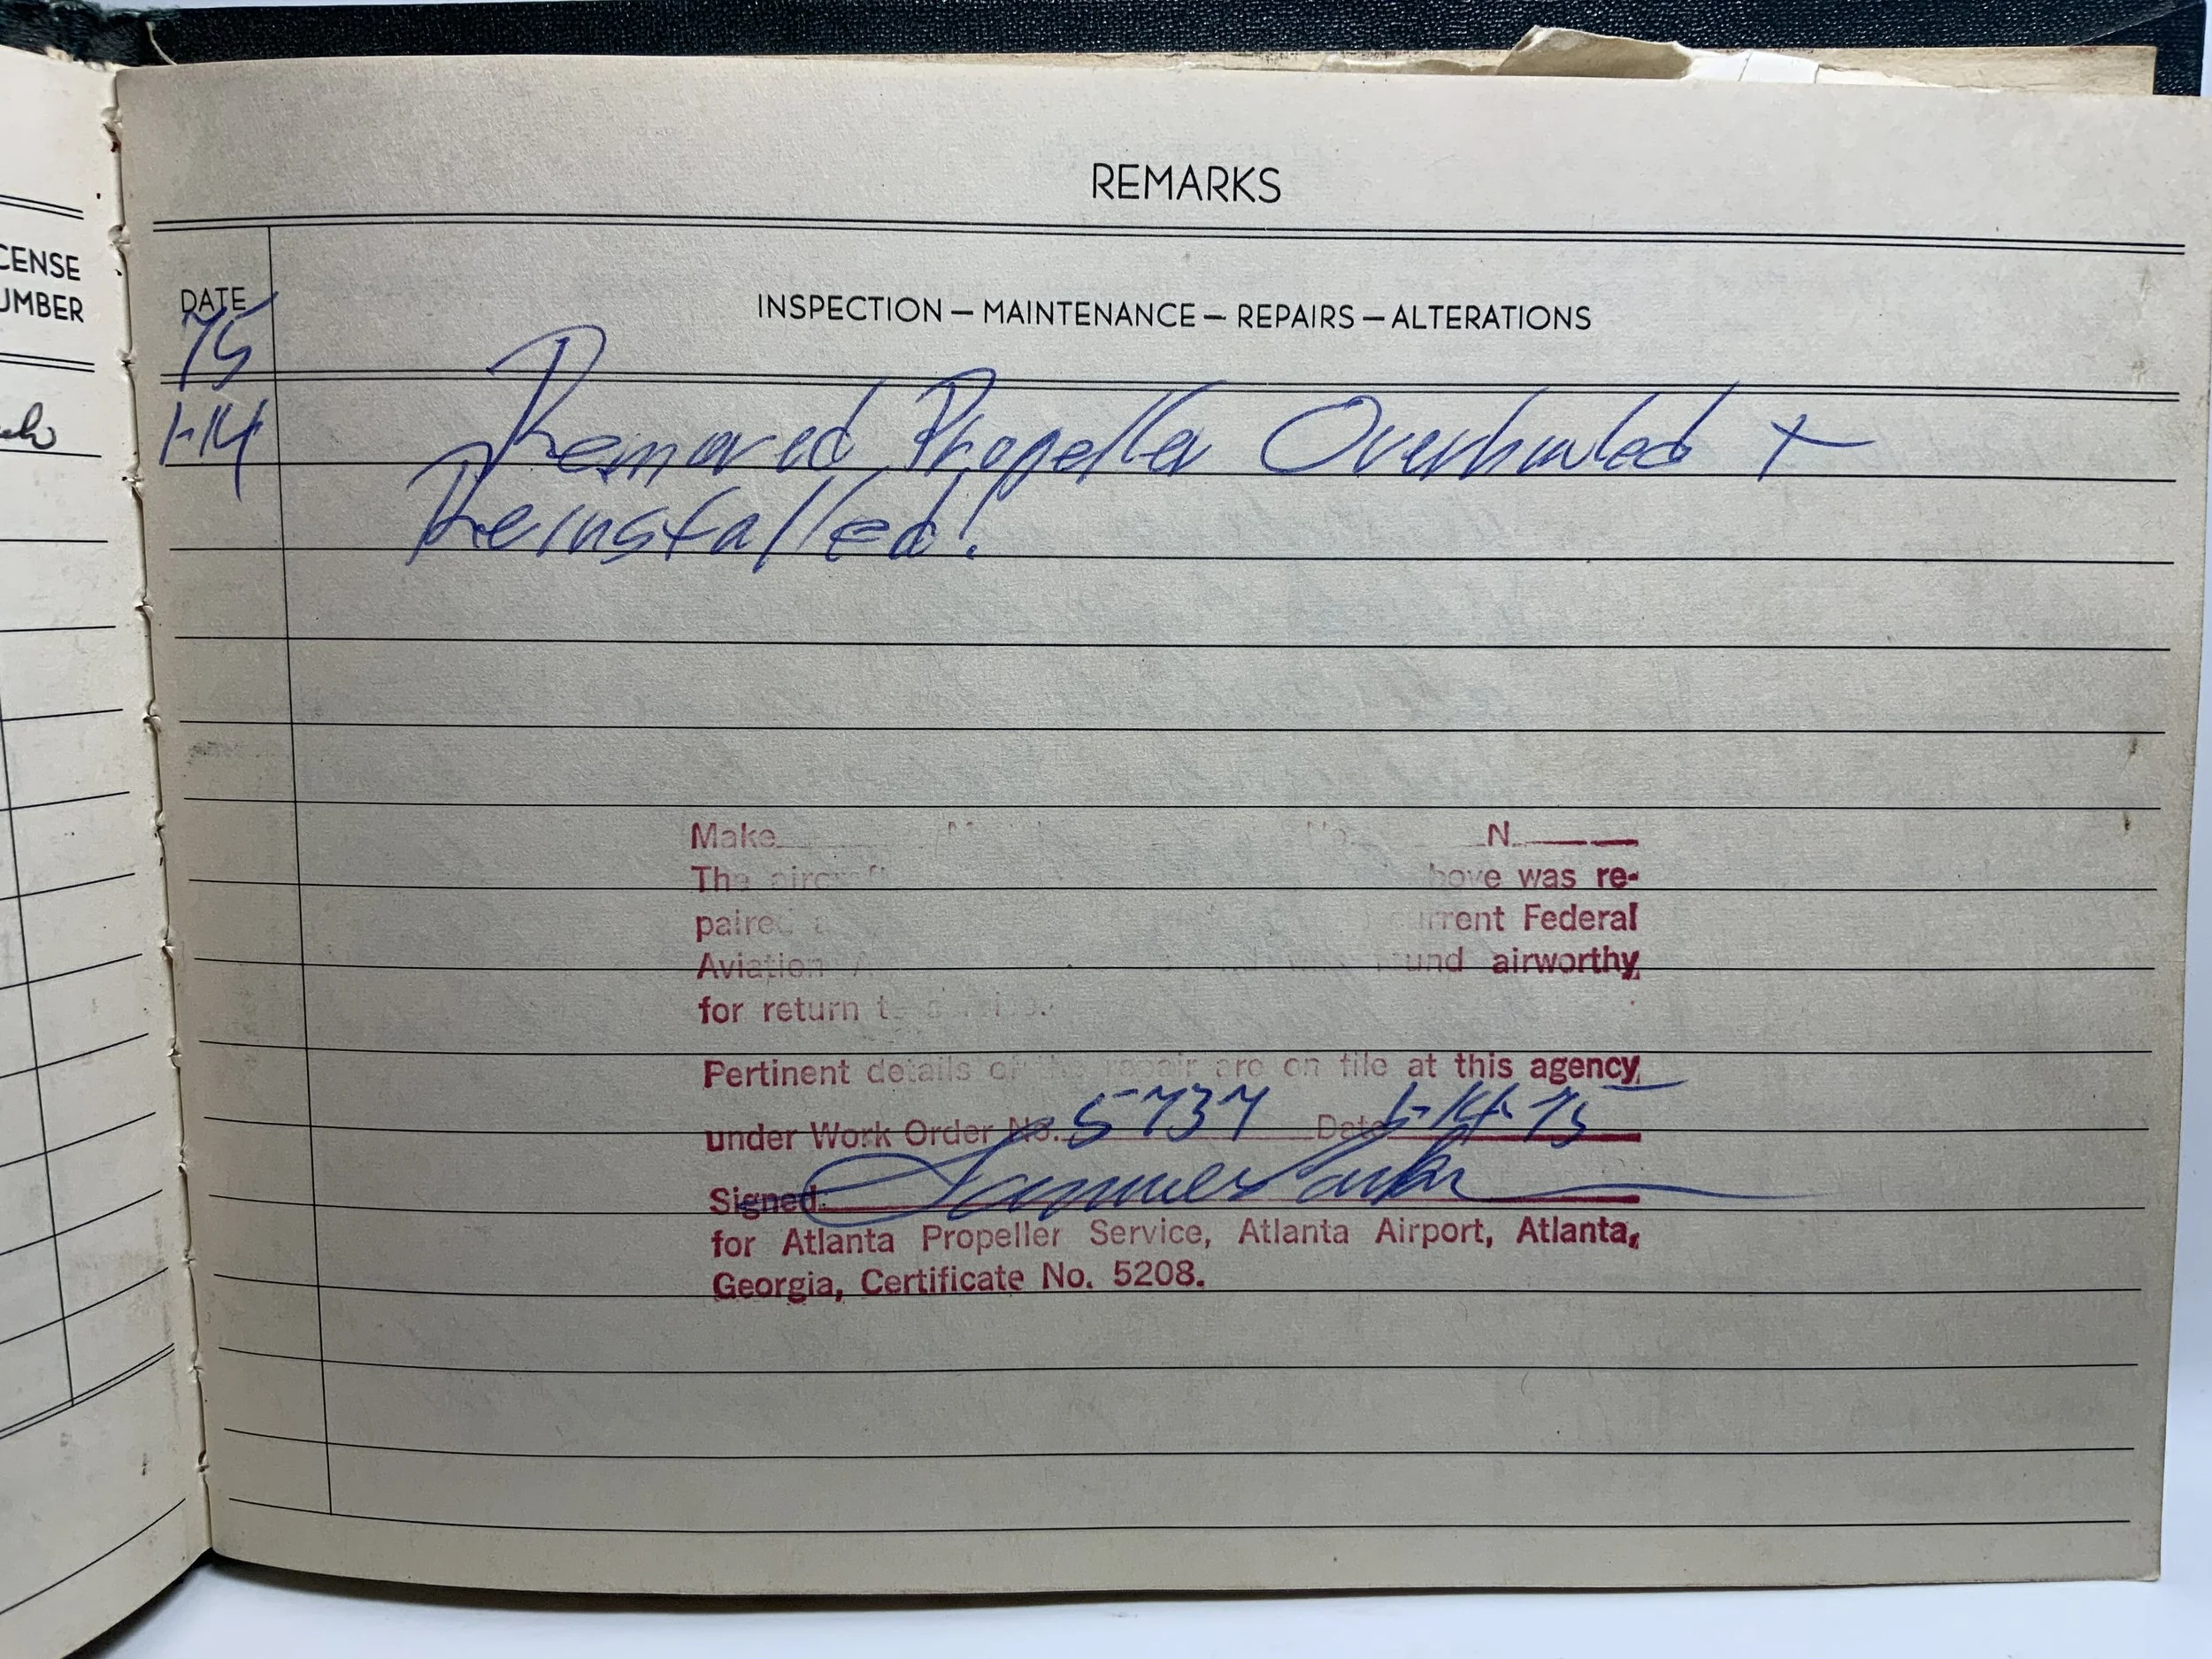 REMARKS
CENSE
UMBER
DATE
INSPECTION — MAINTENANCE — REPAIRS — ALTERATIONS
75
1-14 Removed Propeller Overhauled +
Reinstalled!
Make N.
The aircraft above was re-
paired current Federal
Aviation found airworthy
for return to service.
Pertinent details of the repair are on file at this agency
under Work Order No. 5737 Date 1-14-75
Signed:
for Atlanta Propeller Service, Atlanta Airport, Atlanta,
Georgia, Certificate No. 5208.